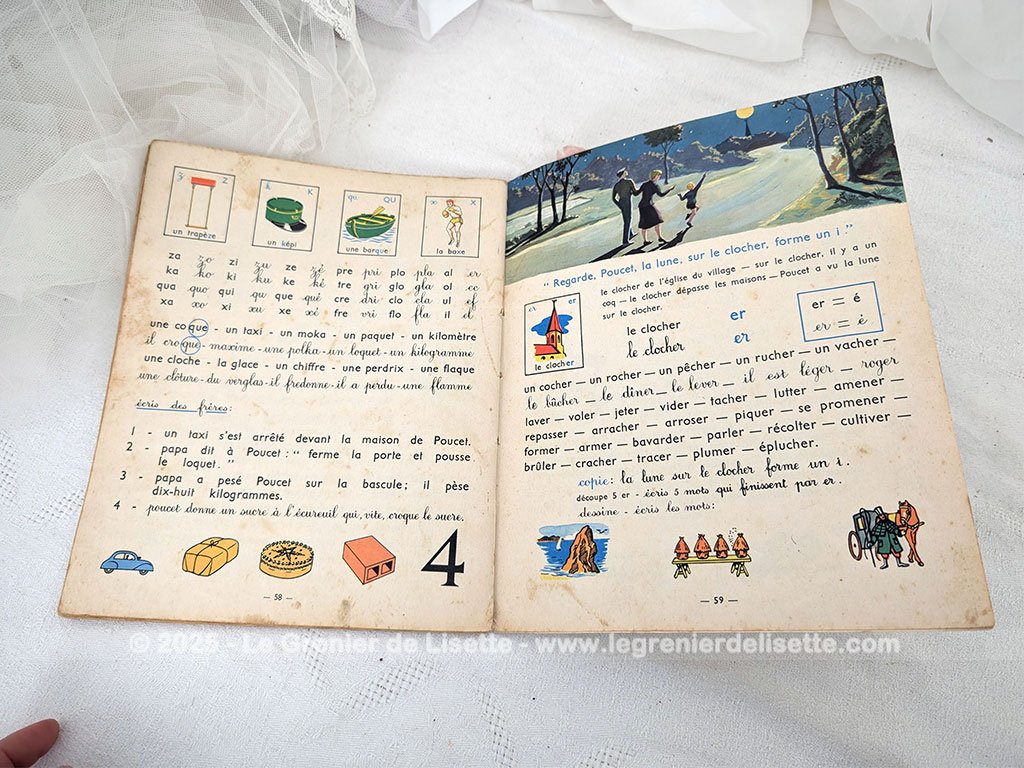 z Z
un trapèze
k K
un képi
qu. QU
une barque
x X
la boxe
za zo zi zu ze zé pre pri plo pla al er
ka ko ki ku ke ké tre gri glo gla ol ec
qua quo qui qu que qué cre dri clo cla ul ef
xa xo xi xu xe xé fre vri flo fla il el
une coque - un taxi - un moka - un paquet - un kilomètre
il croque - maxime - une polka - un loquet - un kilogramme
une cloche - la glace - un chiffre - une perdrix - une flaque
une clôture - du verglas - il fredonne - il a perdu - une flamme
écris des frères :
1 - un taxi s'est arrêté devant la maison de Poucet.
2 - papa dit à Poucet : " ferme la porte et pousse
le loquet. "
3 - papa a pesé Poucet sur la bascule ; il pèse
dix-huit kilogrammes.
4 - poucet donne un sucre à l'écureuil qui, vite, croque le sucre.
4
— 58 —
" Regarde, Poucet, la lune, sur le clocher, forme un i "
er er
le clocher
le clocher de l'église du village — sur le clocher, il y a un
coq — le clocher dépasse les maisons — Poucet a vu la lune
sur le clocher.
le clocher er
le clocher er
er = é
er = é
un cocher — un rocher — un pêcher — un rucher — un vacher —
le bûcher — le dîner — le lever — il est léger — roger
laver — voler — jeter — vider — tacher — lutter — amener —
repasser — arracher — arroser — piquer — se promener —
former — armer — bavarder — parler — récolter — cultiver —
brûler — cracher — tracer — plumer — éplucher.
copie : la lune sur le clocher forme un i.
découpe 5 er - écris 5 mots qui finissent par er.
dessine - écris les mots :
— 59 —
© 2025 - Le Grenier de Lisette - www.legrenierdelisette.com